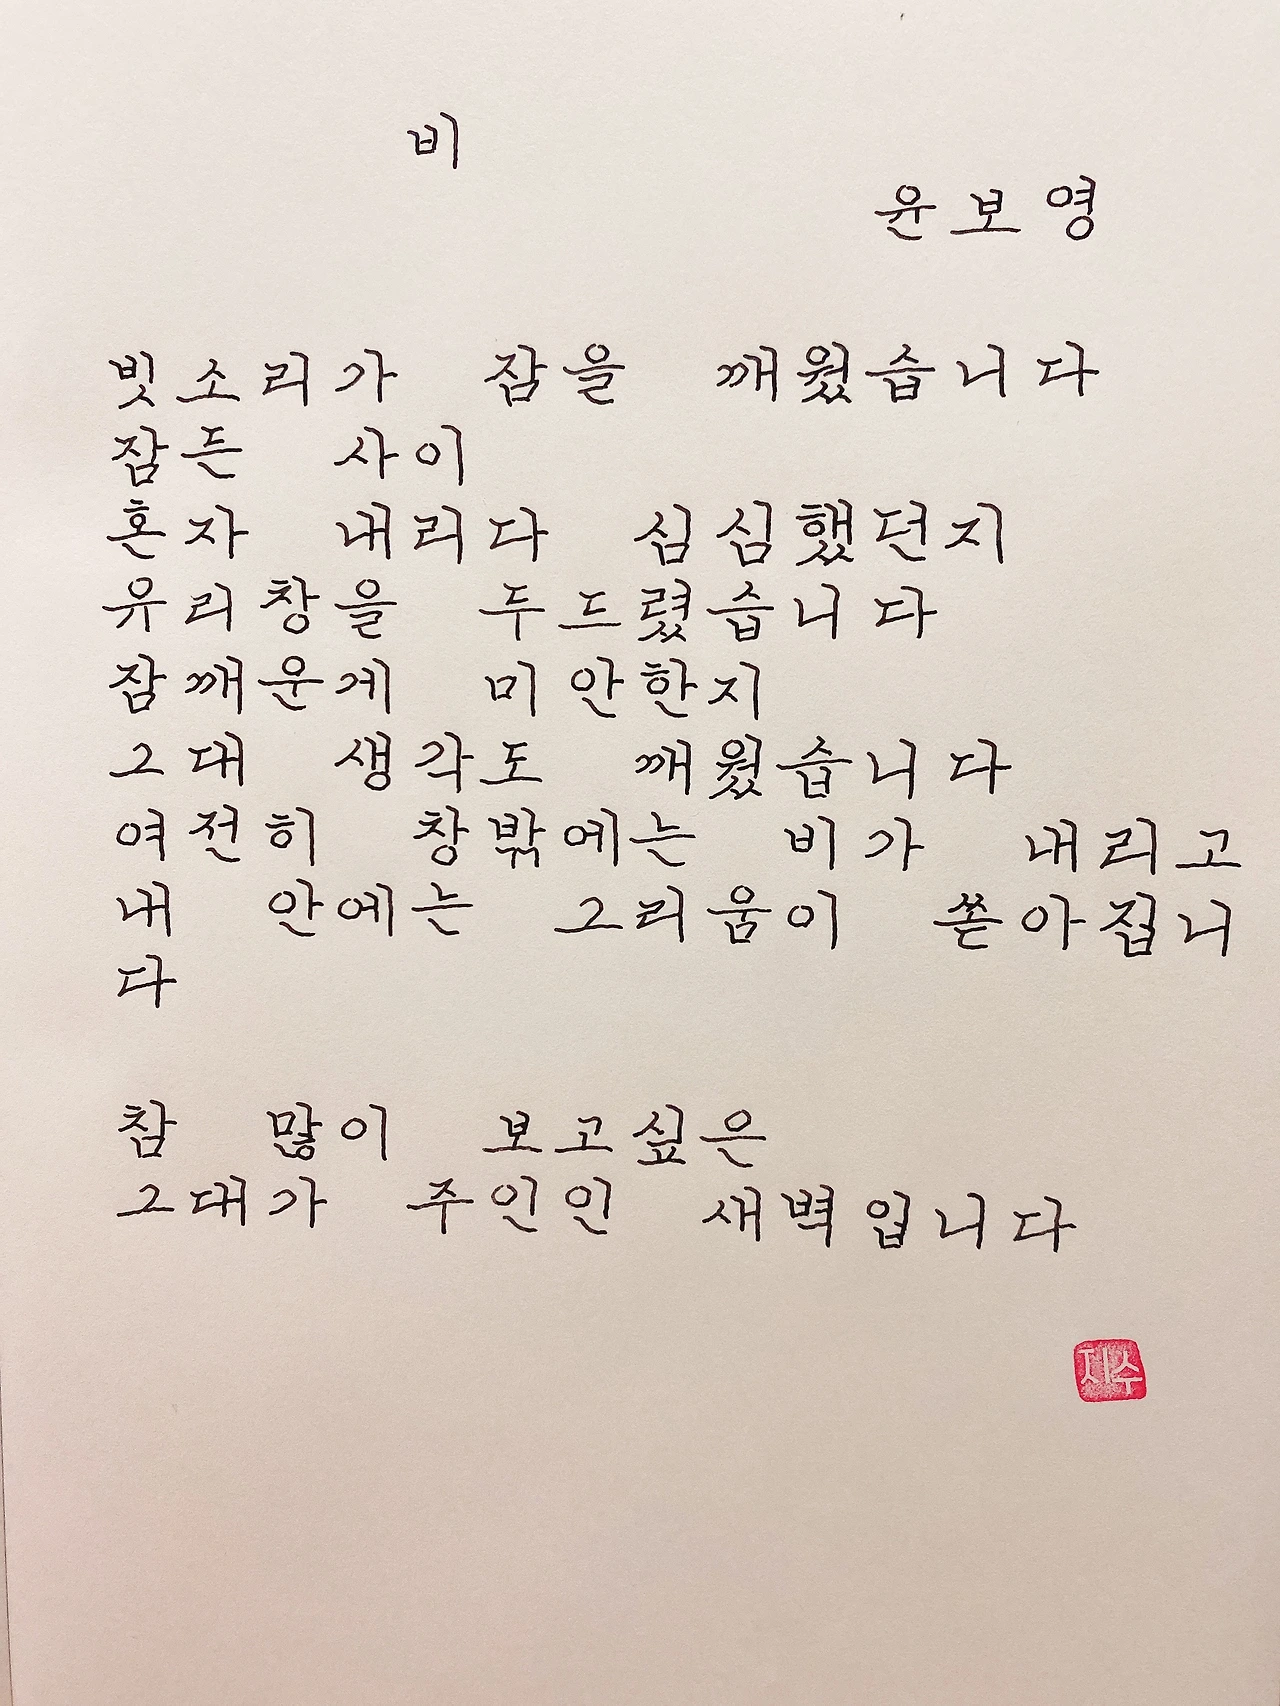 비
윤보영
빗소리가 잠을 깨웠습니다
잠든 사이
혼자 내리다 심심했던지
유리창을 두드렸습니다
잠깨운게 미안한지
그대 생각도 깨웠습니다
여전히 창밖에는 비가 내리고
내 안에는 그리움이 쏟아집니
다
참 많이 보고싶은
그대가 주인인 새벽입니다
지수